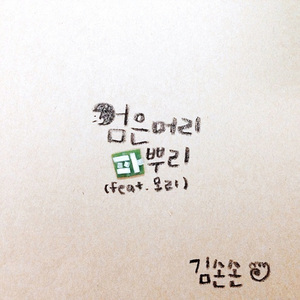 검은머리
파뿌리
(feat. 몽리)
김손손